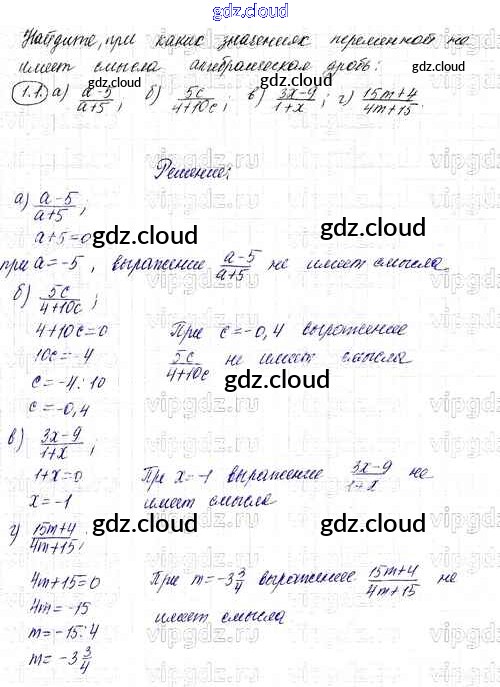 gdz.cloud
Найдите, при каких значениях переменной не
имеет смысла алгебраическая дробь:
1.1. а) a-5/a+5; б) 5c/4+10c; в) 3x-9/1+x; г) 15m+4/4m+15.
gdz.cloud gdz.cloud
Решение:
а) a-5/a+5;
gdz.cloud gdz.cloud
a+5=0
при a=-5, выражение a-5/a+5 не имеет смысла
б) 5c/4+10c;
gdz.cloud gdz.cloud
4+10c=0 При c=-0,4 выражение
10c=-4 5c/4+10c не имеет смысла
c=-4:10 gdz.cloud
c=-0,4
в) 3x-9/1+x;
gdz.cloud
1+x=0 При x=-1 выражение 3x-9/1+x не
x=-1 имеет смысла
г) 15m+4/4m+15;
gdz.cloud gdz.cloud
4m+15=0 При m=-3 3/4 выражение 15m+4/4m+15 не
4m=-15 имеет смысла
m=-15:4
m=-3 3/4
gdz.cloud